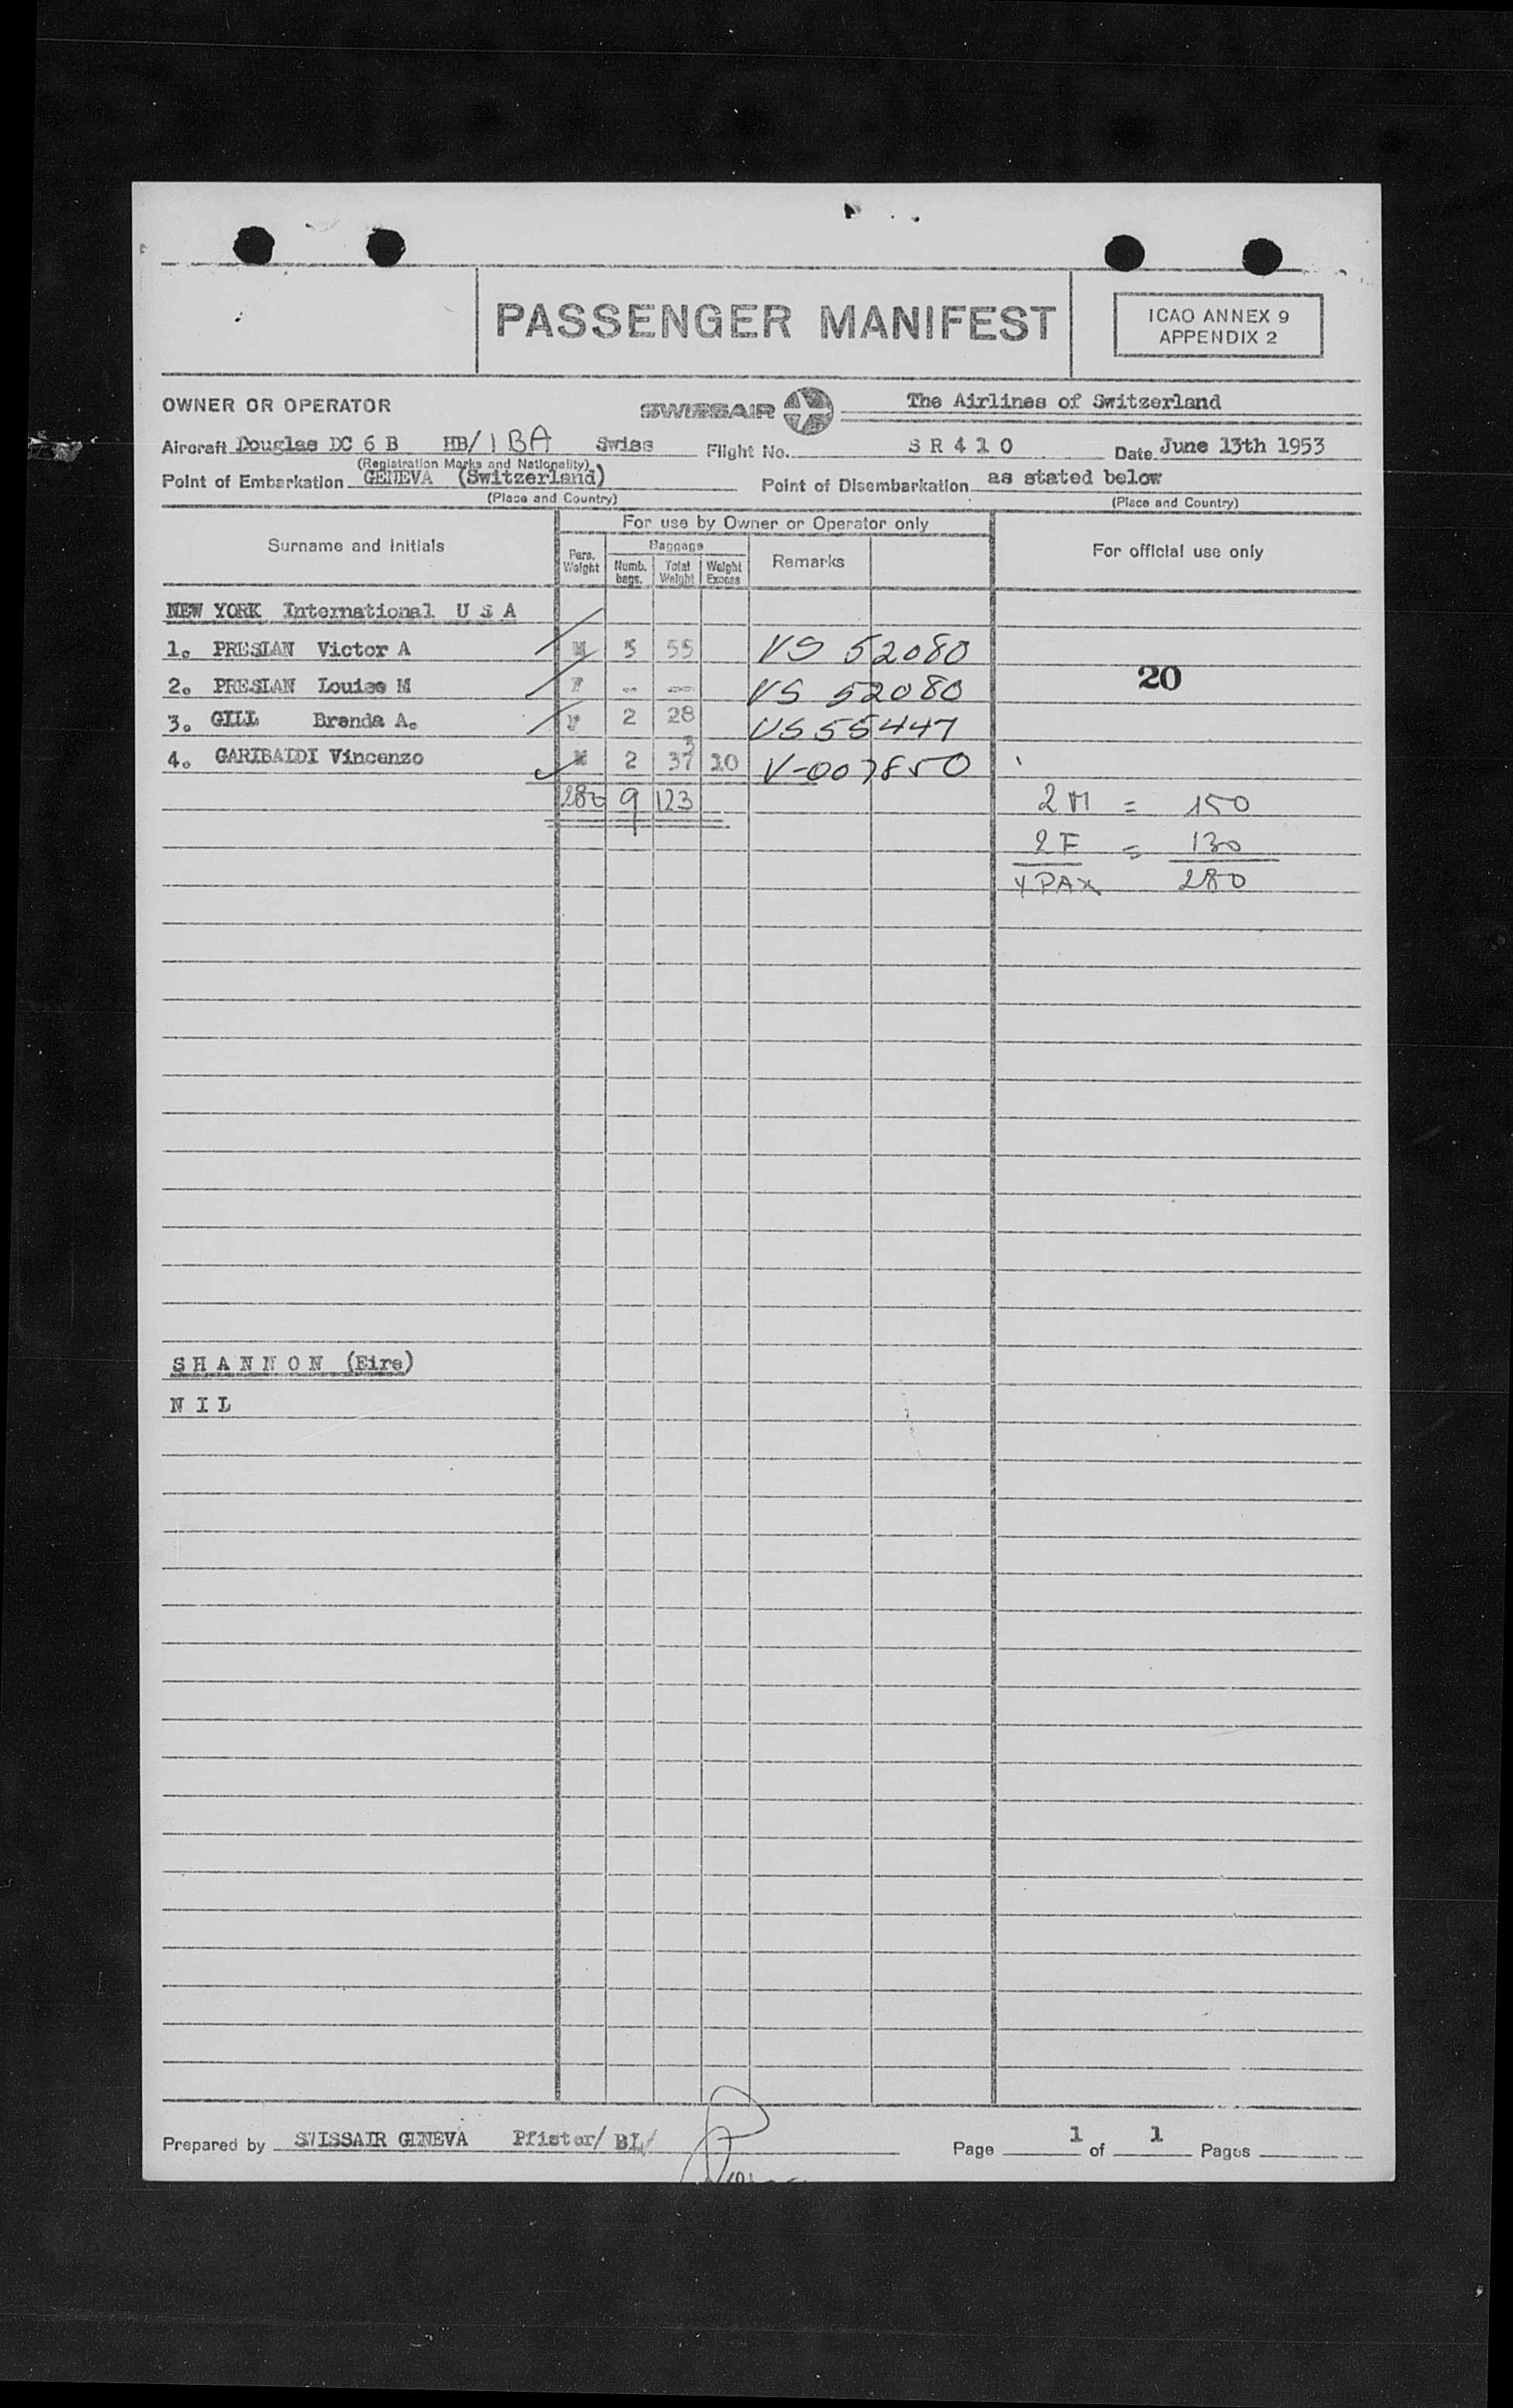 PASSENGER MANIFEST
ICAO ANNEX 9
APPENDIX 2
OWNER OR OPERATOR SWISSAIR The Airlines of Switzerland
Aircraft Douglas DC 6 B HB/IBA Swiss Flight No. SR 410 Date June 13th 1953
(Registration Marks and Nationality)
Point of Embarkation GENEVA (Switzerland) Point of Disembarkation as stated below
(Place and Country) (Place and Country)
For use by Owner or Operator only
Surname and Initials Pers. Weight Baggage Numb. bags. Total Weight Weight Excess Remarks For official use only
NEW YORK International U S A
1. PRESIAN Victor A M 5 55 VS 52080
20
2. PRESIAN Louise M F -- --- VS 52080
3. GILL Brenda A. F 2 28 VS 55447
3
4. GARIBALDI Vincenzo M 2 37 10 V-007850
280 9 123 2 M = 150
2 F = 130
4 PAX 280
S H A N N O N (Eire)
N I L
Prepared by SWISSAIR GENEVA Pfister/ BL/ Page 1 of 1 Pages